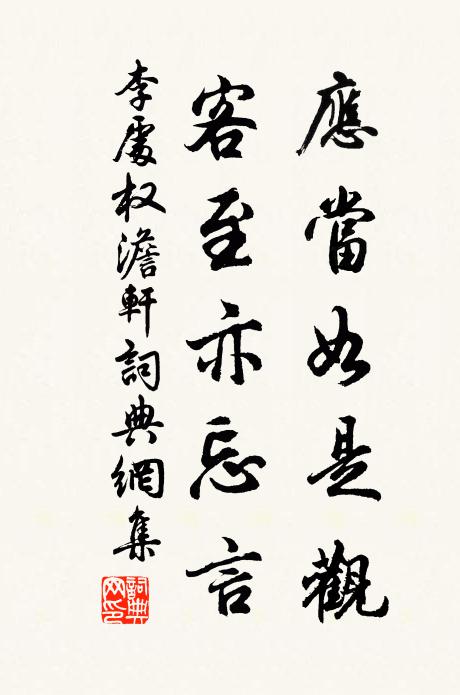 應當如是觀
客至亦忘言
李處权澹軒詞典網集
詞典网印